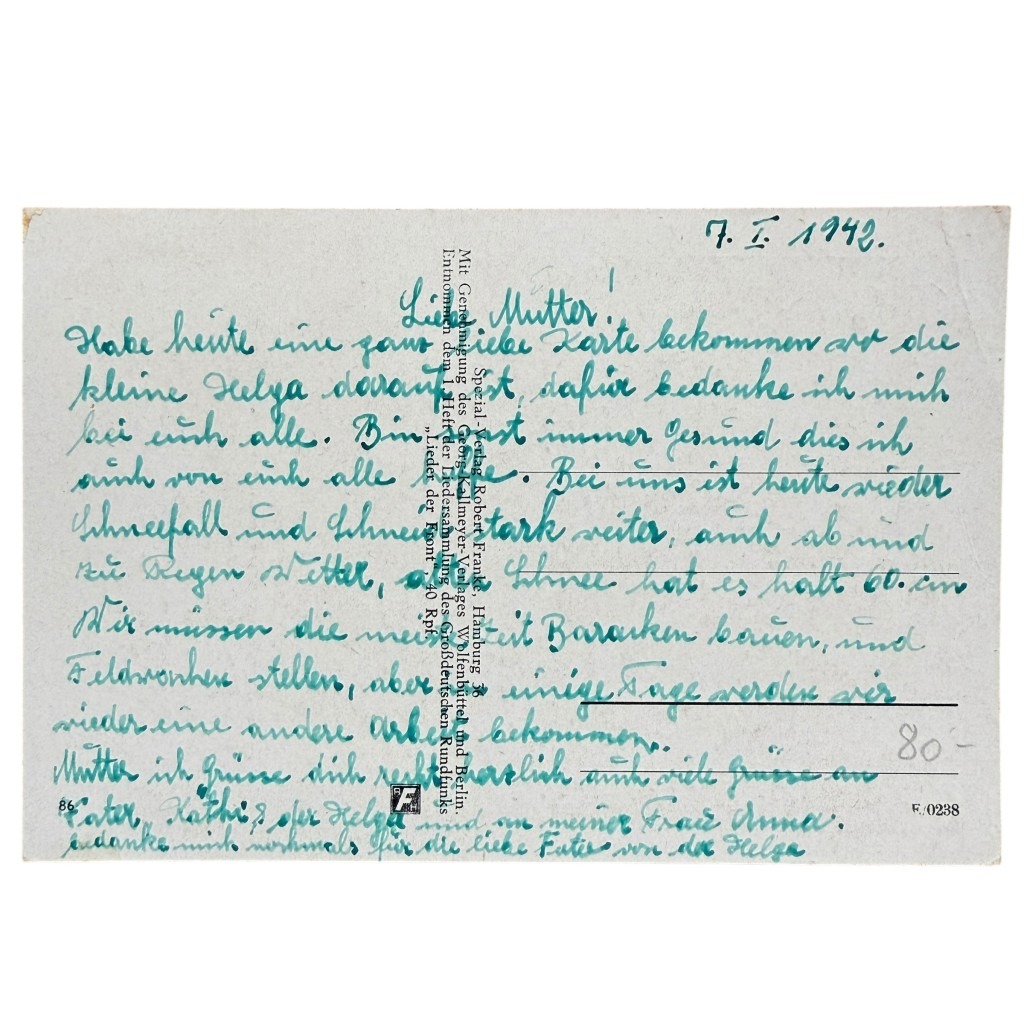 7. I. 1942.
Liebe Mutter!
Habe heute eine ganz liebe Karte bekommen wo die
kleine Helga darauf ist, dafür bedanke ich mich
bei euch alle. Bin sonst immer Gesund dies ich
auch von euch alle hoffe. Bei uns ist heute wieder
Schneefall und Schneit stark weiter, auch ab und
zu Regen Wetter, aber Schnee hat es halt 60. cm
Wir müssen die meiste Zeit Baracken bauen, und
Feldwachen stellen, aber in einige Tage werden wir
wieder eine andere Arbeit bekommen.
Mutter ich Grüsse dich recht herzlich auch viele Grüsse an
Fater, Käthi, der Helga und an meiner Frau Anna.
bedanke mich nochmals für die liebe von der Helga
Spezial-Verlag Robert Franke, Hamburg 36
Mit Genehmigung des Georg-Kallmeyer-Verlages Wolfenbüttel und Berlin.
Entnommen dem 1. Heft der Liedersammlung des Großdeutschen Rundfunks
„Lieder der Front“, 40 Rpf.
86
80-
E/0238